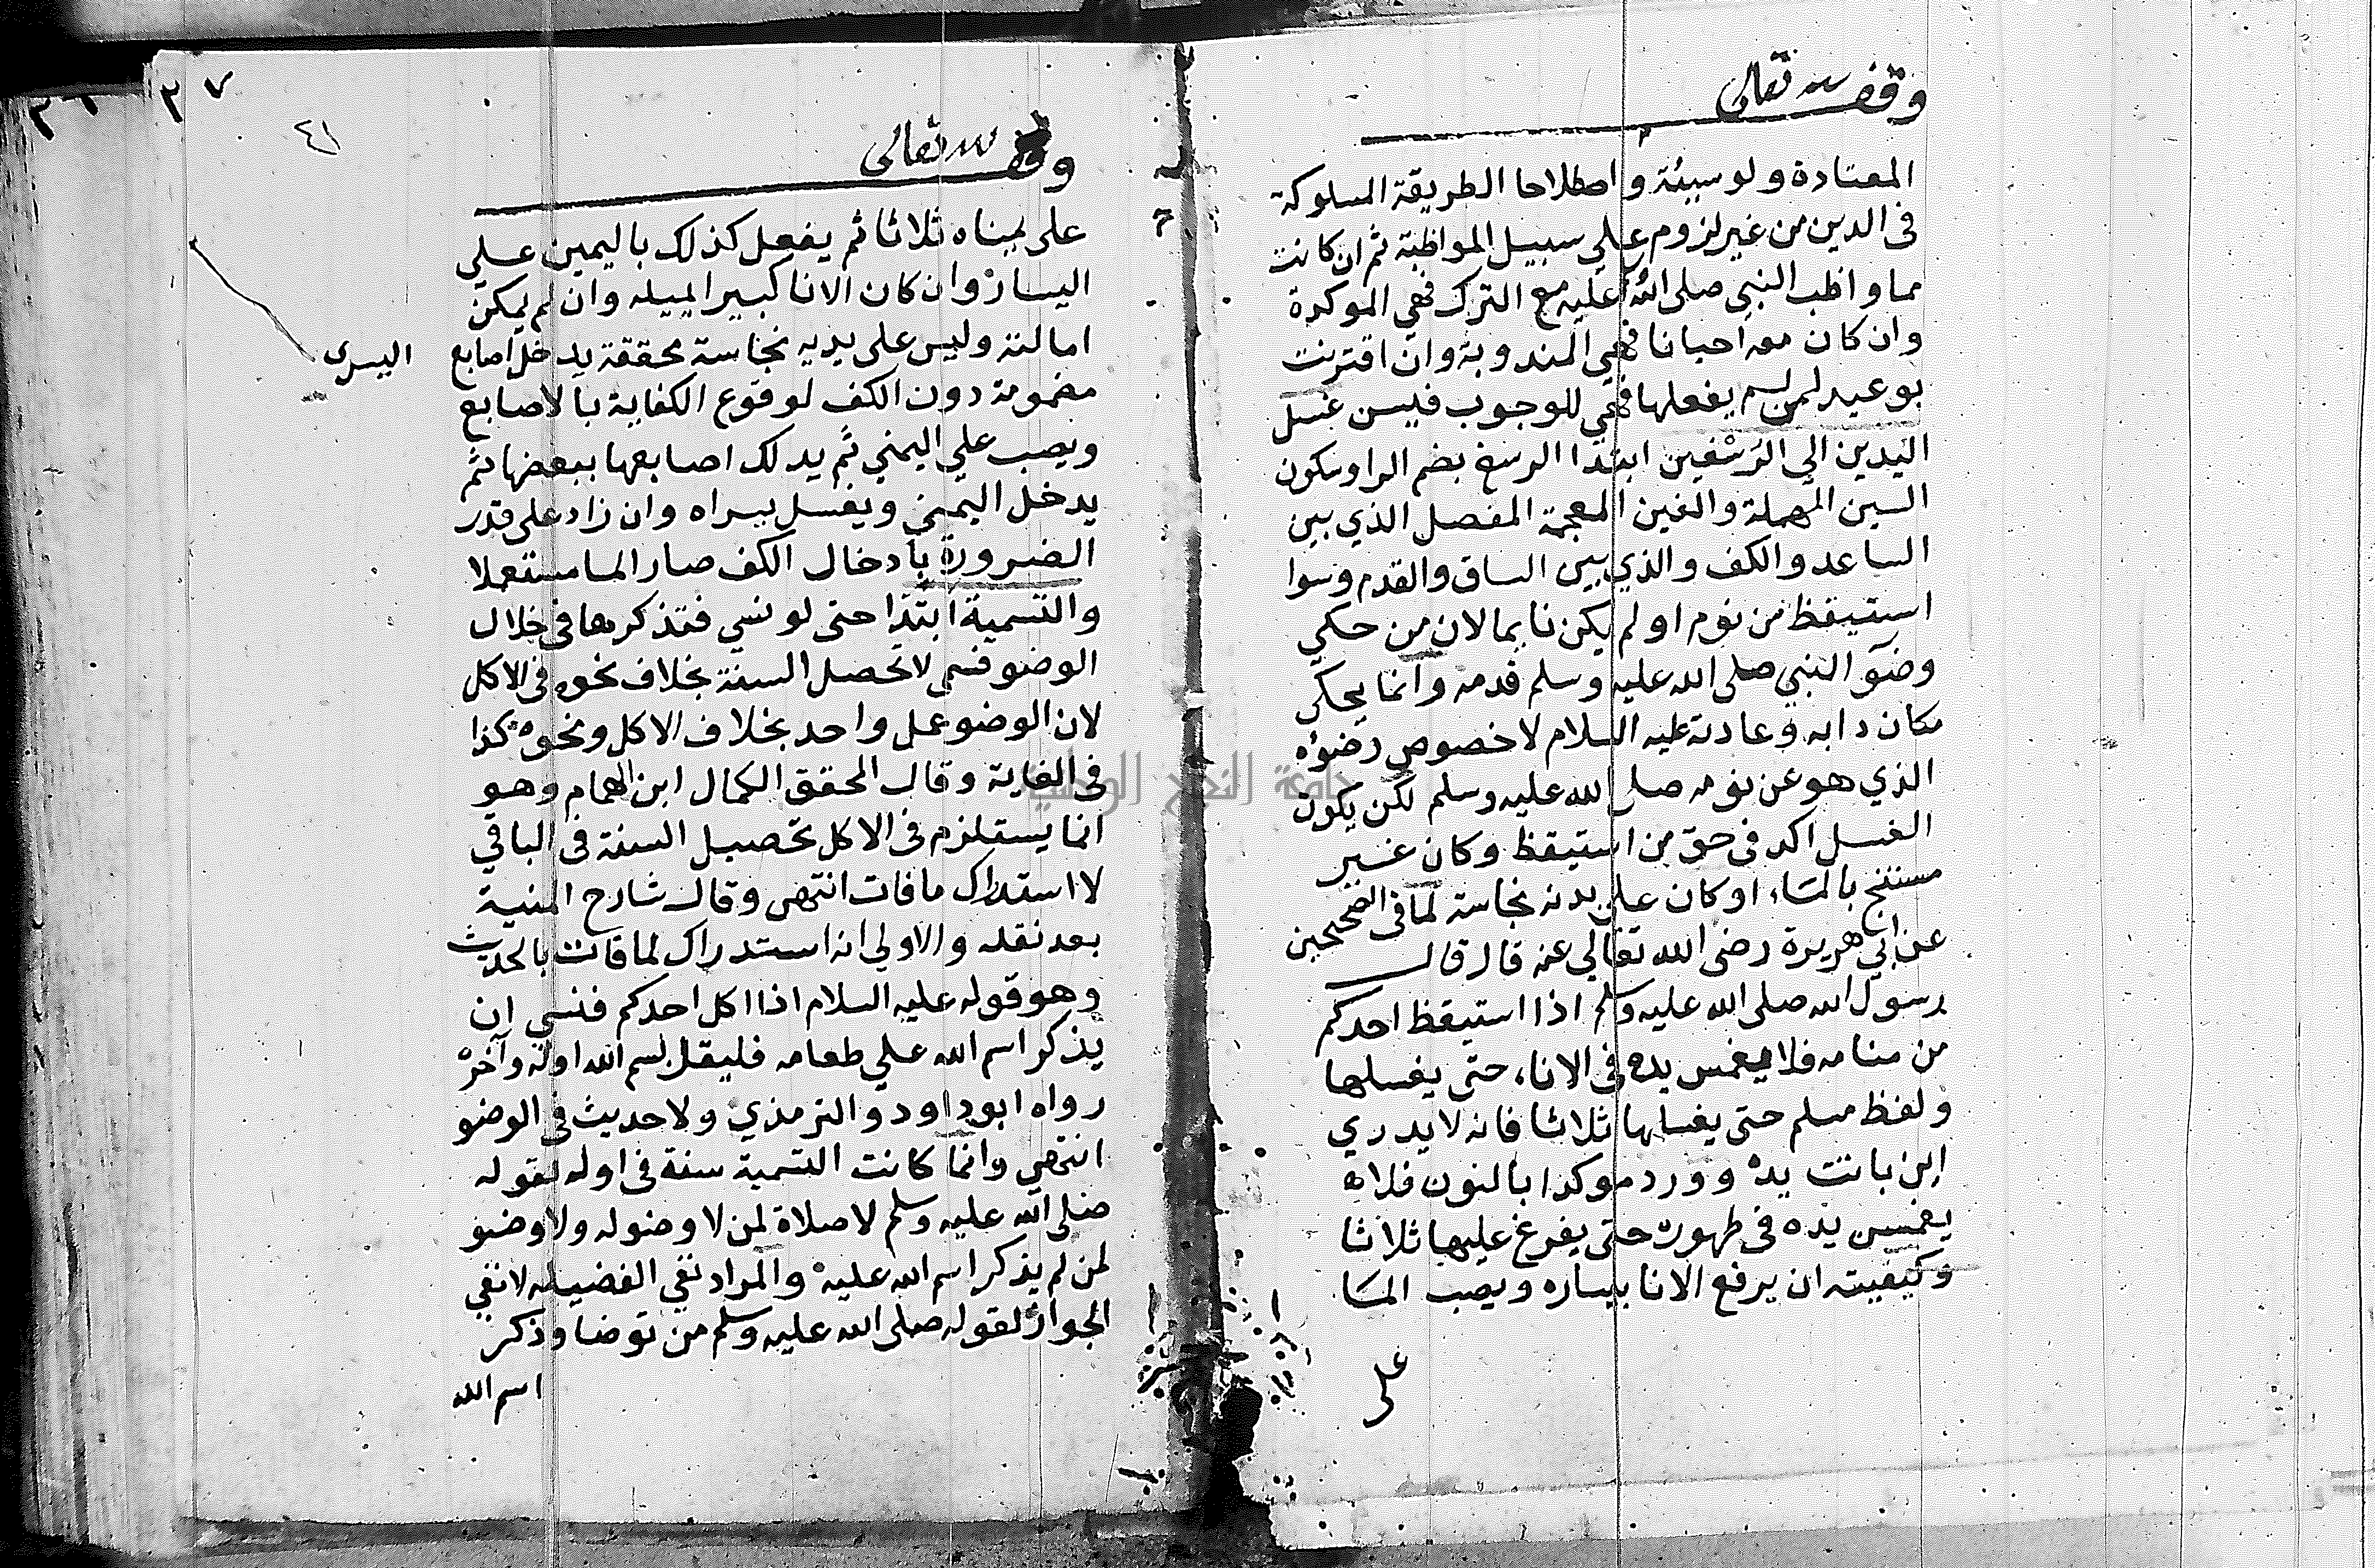 وقف لله تعالى
المعتادة ولو سيئة واصطلاحا الطريقة المسلوكة
فى الدين من غير لزوم علي سبيل المواظبة ثم ان كانت
مما واظب النبي صلى الله عليه مع الترك فهي الموكدة
وان كان معه احيانا فهي المندوبة وان اقترنت
بوعيد لمن لم يفعلها فهي للوجوب فيسن غسل
اليدين الي الرسغين ابتدا الرسغ بضم الرا وسكون
السين المهملة والغين المعجمة المفصل الذي بين
الساعد والكف والذي بين الساق والقدم وسوا
استيقظ من نوم او لم يكن نايما لان من حكي
وضوٓ النبي صلى الله عليه وسلم قدمه وانما يحكى
مكان دابه وعادته عليه السلام لا خصوص وضوٴه
الذي هو عن نومه صلى الله عليه وسلم لكن يكون
الغسل اكد فى حق من استيقظ وكان غير
مستنج بالماء او كان على بدنه نجاسة لما فى الصحيحين
عن ابي هريرة رضى الله تعالي عنه قال قال
رسول الله صلى الله عليه وسلم اذا استيقظ احدكم
من منامه فلا يغمس يده فى الاناء حتى يغسلها
ولفظ مسلم حتى يغسلها ثلاثا فانه لا يدري
اين باتت يده وورد موكدا بالنون فلا
يغمسن يده فى طهوره حتى يفرغ عليها ثلاثا
وكيفيته ان يرفع الانا بيساره ويصب الما
على
٣٧
٤١
وقف لله تعالى
على يمناه ثلاثا ثم يفعل كذلك باليمين علي
اليسار وان كان الانا كبيرا يميله وان لم يمكن
امالته وليس على يديه نجاسة محققة يدخل اصابع
اليسرى
مضمومة دون الكف لوقوع الكفاية بالاصابع
ويصب علي اليمني ثم يدلك اصابعها ببعضها ثم
يدخل اليمني ويغسل يسراه وان زاد على قدر
الضرورة بادخال الكف صار الما مستعملا
والتسمية ابتدا حتى لو نسي فتذكرها فى خلال
الوضو فسمى لا تحصل السنة بخلاف نحوه فى الاكل
لان الوضو عمل واحد بخلاف الاكل ونحوه كذا
فى الغاية وقال المحقق الكمال ابن الهمام وهو
انما يستلزم فى الاكل تحصيل السنة فى الباقي
لا استدراك ما فات انتهى وقال شارح المنية
بعد نقله والاولي انه استدراك لما فات بالحديث
وهو قوله عليه السلام اذا اكل احدكم فنسي ان
يذكر اسم الله علي طعامه فليقل بسم الله اوله وآخره
رواه ابو داود والترمذي ولا حديث فى الوضو
انتهي وانما كانت التسمية سنة فى اوله لقوله
صلى الله عليه وسلم لا صلاة لمن لا وضو له ولا وضو
لمن لم يذكر اسم الله عليه والمراد نفي الفضيله لا نفي
الجواز لقوله صلى الله عليه وسلم من توضا وذكر
اسم الله
جامعة النجاح الوطنية